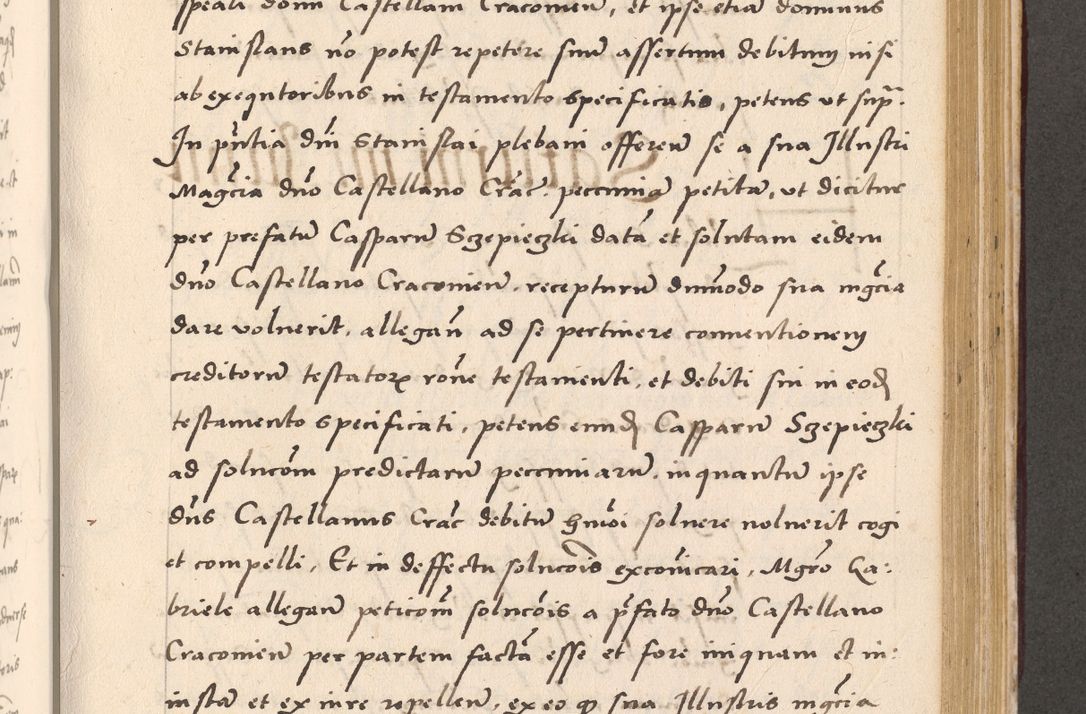 speali domi Castellam Cracovień, et ipse etiā dominus
Stanislaus nō potest repetere suū assertum debitum nisi
ab exequtoribus in testamento specificatis, petens ut supr̄.
In pn̄tia dn̄i Stanislai plebani offereń se a sua Illustri
Magcia dn̄o Castellano Crac̄. peccuniā petitā, ut dicitur
per prefatū Casparū Sczepieczki datā et solutam eidem
dn̄o Castellano Cracovień. recepturū dūmodo sua mgcia
dare voluerit, allegań ad se pertinere conventionem
creditorū testatorꝝ rōne testamenti, et debiti sui in eod
testamento specificati, petens eund Casparū Sczepieczki
ad solucōm predictarū peccuniarū. inquantū ipse
dn̄s Castellanus Crac̄ debitū hmōi solvere noluerit cogi
et compelli, Et in deffectu solucōis excoīcari, Mgrō Ga:
briele allegań peticōm solucōis a p̄fato dn̄o Castellano
Cracovień per partem factā esse et fore iniquam et in:
instā et ex iure repelleń, ex eo ꝙ sua Illustris mgcia